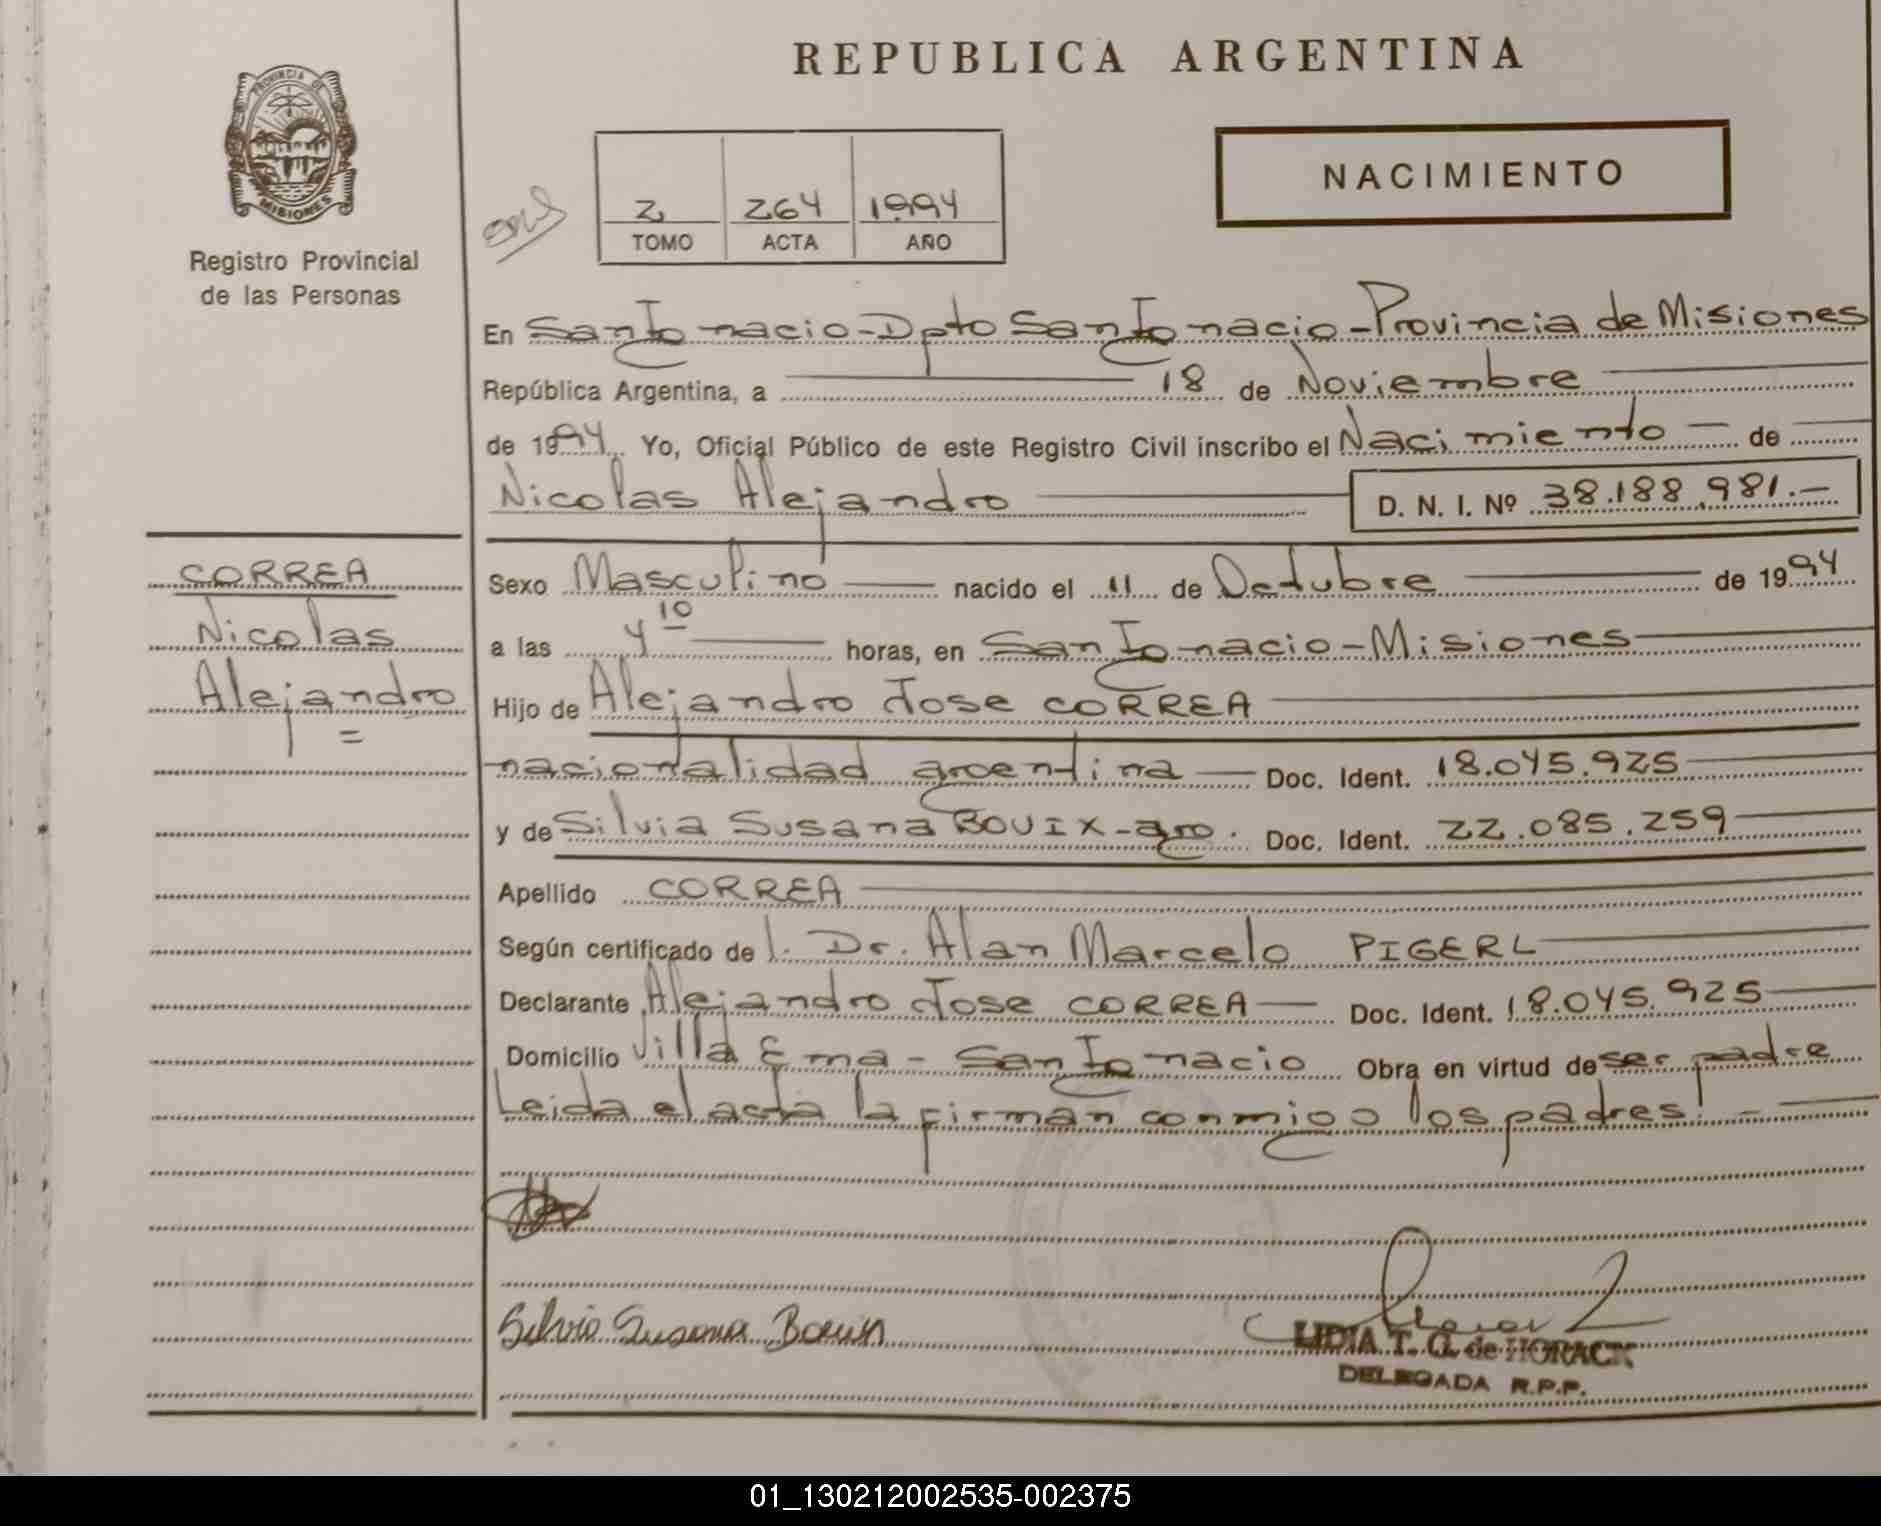 REPUBLICA ARGENTINA
PROVINCIA DE
MISIONES
Registro Provincial
de las Personas
2 264 1994
TOMO ACTA AÑO
NACIMIENTO
En San Ignacio-Dpto San Ignacio-Provincia de Misiones
República Argentina, a 18 de Noviembre
de 1994 Yo, Oficial Público de este Registro Civil inscribo el Nacimiento de
Nicolas Alejandro D. N. I. Nº 38.188.981.-
CORREA
Nicolas
Alejandro
Sexo Masculino nacido el 11 de Octubre de 1994
a las 4 10 horas, en San Ignacio-Misiones
Hijo de Alejandro Jose CORREA
nacionalidad argentina Doc. Ident. 18.045.925
y de Silvia Susana BOUIX-arg. Doc. Ident. 22.085.259
Apellido CORREA
Según certificado de l. Dr. Alan Marcelo PIGERL
Declarante Alejandro Jose CORREA Doc. Ident. 18.045.925
Domicilio Villa Ema - San Ignacio Obra en virtud de ser padre
Leida el acta la firman conmigo los padres.-
Silvia Susana Bouix
LIDIA T. G. de HORACK
DELEGADA R.P.P.
01_130212002535-002375